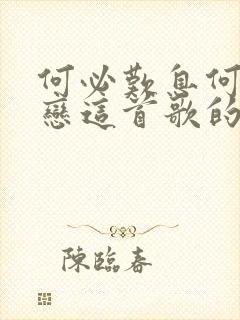 何必歎自何
戀這首歌的
陳臨春